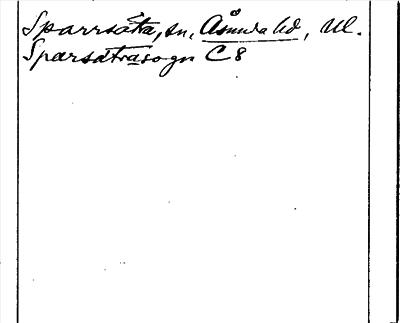 Sparrsäta, sn, Åsunda hd, Ul.
Sparsätrasogn C 8